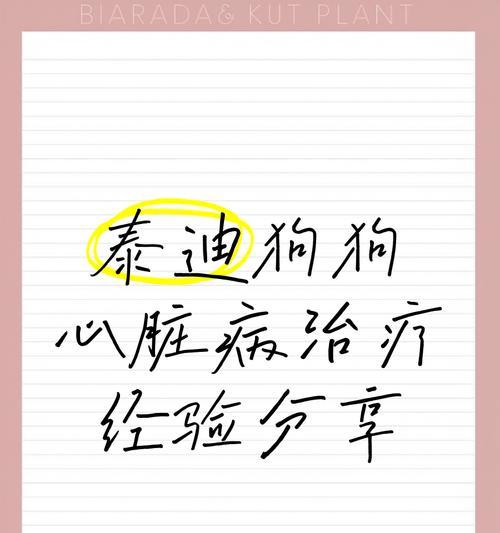 BIARADA& KUT PLANT
泰迪狗狗
心脏病治疗
经验分享